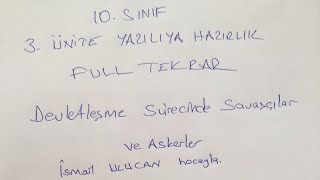 10. SINIF
3. ÜNİTE YAZILIYA HAZIRLIK
FULL TEKRAR
Devletleşme Sürecinde Savaşçılar
ve Askerler
İsmail ULUCAN hocayla.